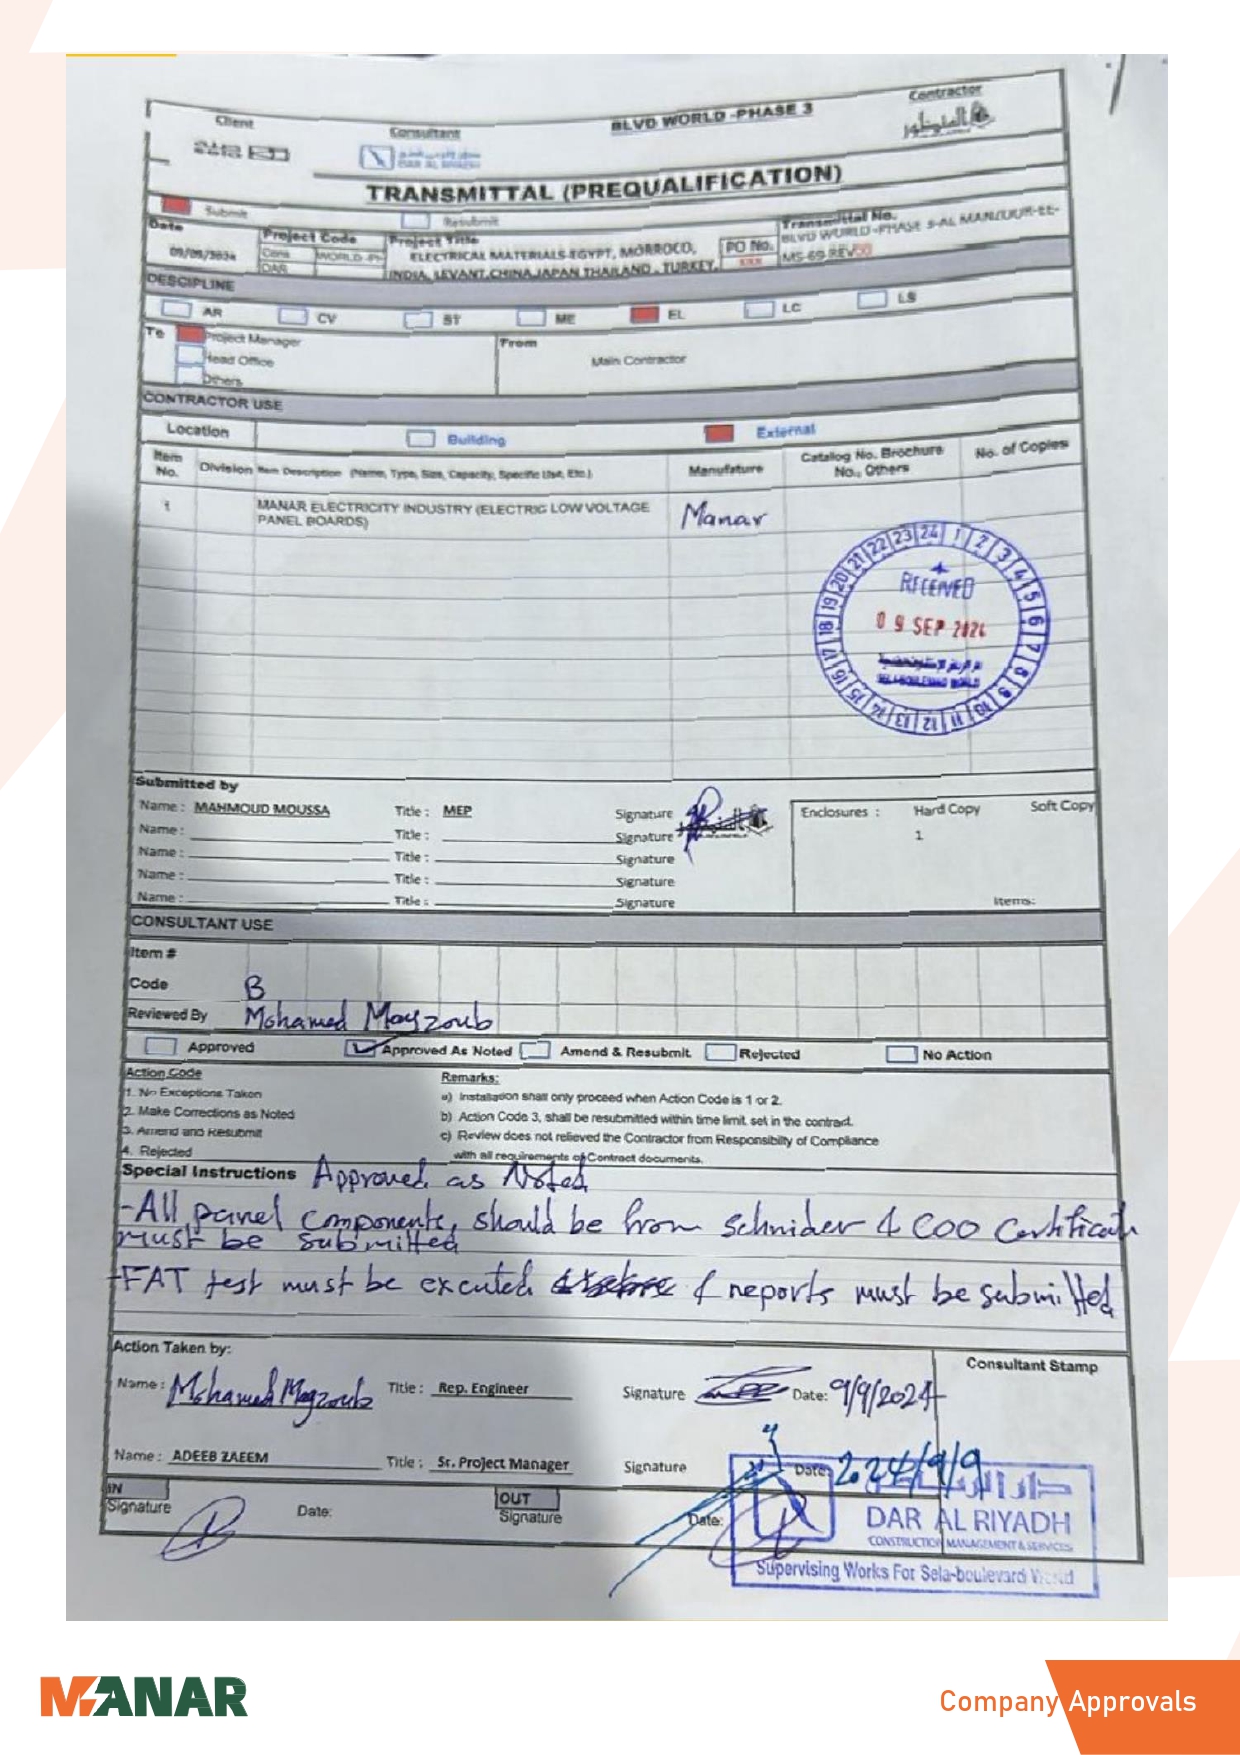 Client
Consultant
BLVD WORLD -PHASE 3
Contractor
DAR AL RIYADH
TRANSMITTAL (PREQUALIFICATION)
Submit
Resubmit
Date
Project Code
Project Title
Transmittal No.
09/09/2024
Cons
WORLD -PH
ELECTRICAL MATERIALS-EGYPT, MORROCO,
PO No.
BLVD WORLD-PHASE 3-AL MANZOUR-EE-
DAR
INDIA, LEVANT,CHINA,JAPAN THAILAND , TURKEY,
XXX
MS-69 REV00
DESCIPLINE
AR
CV
ST
ME
EL
LC
LS
To
Project Manager
Head Office
Others
From
Main Contractor
CONTRACTOR USE
Location
Building
External
Item No.
Division
Item Description (Name, Type, Size, Capacity, Specific Use, Etc.)
Manufature
Catalog No. Brochure No., Others
No. of Copies
1
MANAR ELECTRICITY INDUSTRY (ELECTRIC LOW VOLTAGE
PANEL BOARDS)
Manar
1 2 3 4 5 6 7 8 9 10 11 12 13 14 15 16 17 18 19 20 21 22 23 24
RECEIVED
09 SEP 2024
SELA-BOULEVARD WORLD
Submitted by
Name : MAHMOUD MOUSSA Title : MEP Signature
Name : Title : Signature
Name : Title : Signature
Name : Title : Signature
Name : Title : Signature
Enclosures : Hard Copy Soft Copy
1
Items:
CONSULTANT USE
Item #
Code B
Reviewed By Mohamed Magzoub
Approved
Approved As Noted
Amend & Resubmit
Rejected
No Action
Action Code
1. No Exceptions Taken
2. Make Corrections as Noted
3. Amend and Resubmit
4. Rejected
Remarks:
a) Installation shall only proceed when Action Code is 1 or 2.
b) Action Code 3, shall be resubmitted within time limit set in the contract.
c) Review does not relieved the Contractor from Responsibilty of Compliance
with all requirements of Contract documents.
Special Instructions Approved as Noted
-All panel components, should be from schnider & COO Certificate
must be submitted
-FAT test must be excuted & reports must be submitted
Action Taken by:
Consultant Stamp
Name : Mohamed Magzoub Title : Rep. Engineer Signature Date: 9/9/2024
Name : ADEEB ZAEEM Title : Sr. Project Manager Signature Date: 2024/9/9
IN
Signature
Date:
OUT
Signature
Date:
دار الرياض
DAR AL RIYADH
CONSTRUCTION MANAGEMENT & SERVICES
Supervising Works For Sela-boulevard World
MANAR
Company Approvals